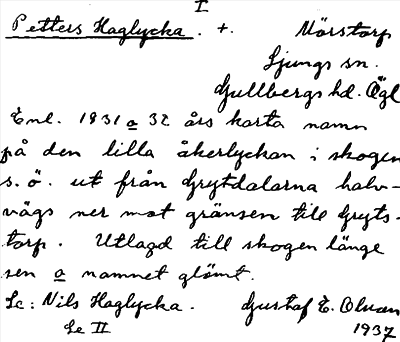 I
Petters Haglycka. +. Mörstorp
Ljungs sn.
Gullbergs hd. Ögl
Enl. 1931 a 32 års karta namn
på den lilla åkerlyckan i skogen
s.ö. ut från Grytdalarna halv-
vägs ner mot gränsen till Gryts-
torp. Utlagd till skogen länge
sen a namnet glömt.
Se: Nils Haglycka. Gustaf E. Olvan
Se II 1937